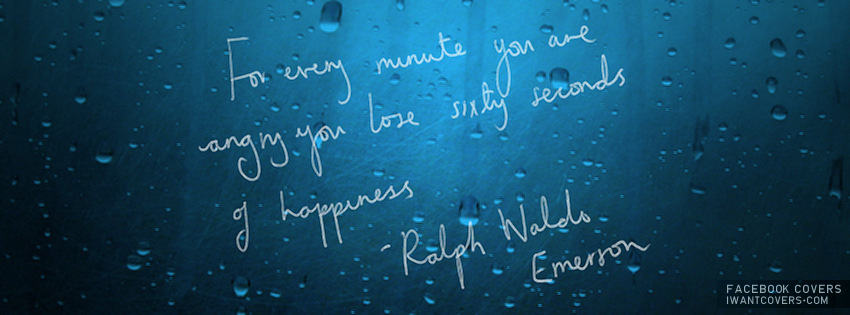 For every minute you are
angry you lose sixty seconds
of happiness
- Ralph Waldo
Emerson
FACEBOOK COVERS
IWANTCOVERS.COM